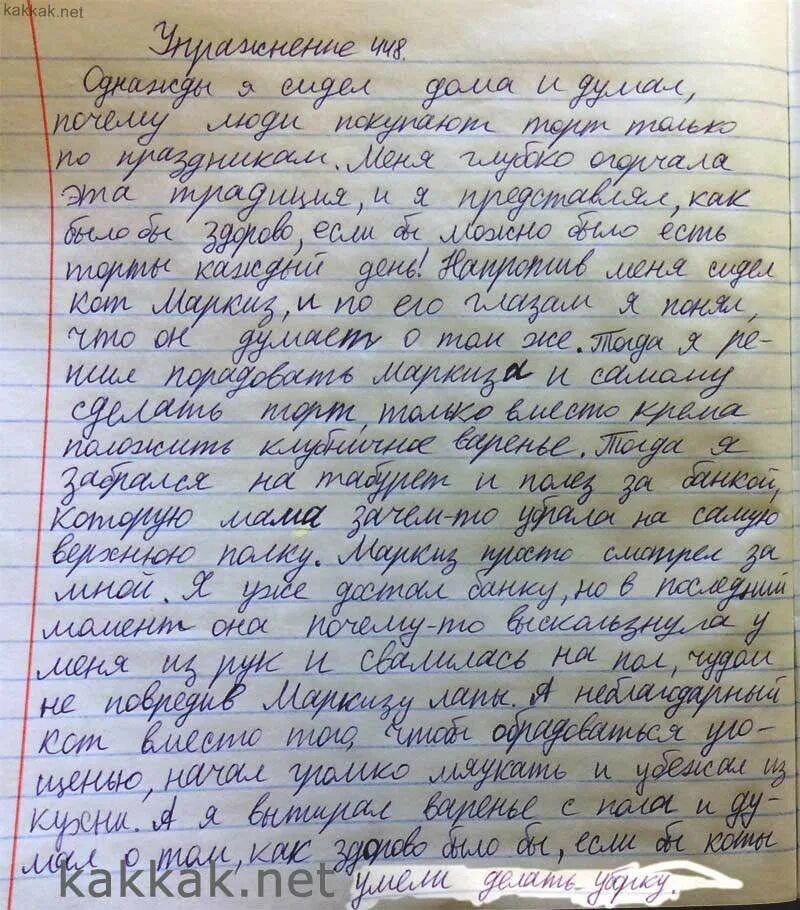 kakkak.net
Упражнение 448.
Однажды я сидел дома и думал,
почему люди покупают торт только
по праздникам. Меня глубко огорчала
эта традиция, и я представлял, как
было бы здорово, если бы можно было есть
торты каждый день! Напротив меня сидел
кот Маркиз, и по его глазам я понял,
что он думает о том же. Тогда я ре-
шил порадовать Маркиза и самому
сделать торт, только вместо крема
положить клубничное варенье. Тогда я
забрался на табурет и полез за банкой,
которую мама зачем-то убрала на самую
верхнюю полку. Маркиз просто смотрел за
мной. Я уже достал банку, но в последний
момент она почему-то выскользнула у
меня из рук и свалилась на пол, чудом
не повредив Маркизу лапы. А неблагодарный
кот вместо того, чтобы обрадоваться уго-
щенью, начал громко мяукать и убежал из
кухни. А я вытирал варенье с пола и ду-
мал о том, как здорово было бы, если бы коты
умели делать уборку.
kakkak.net